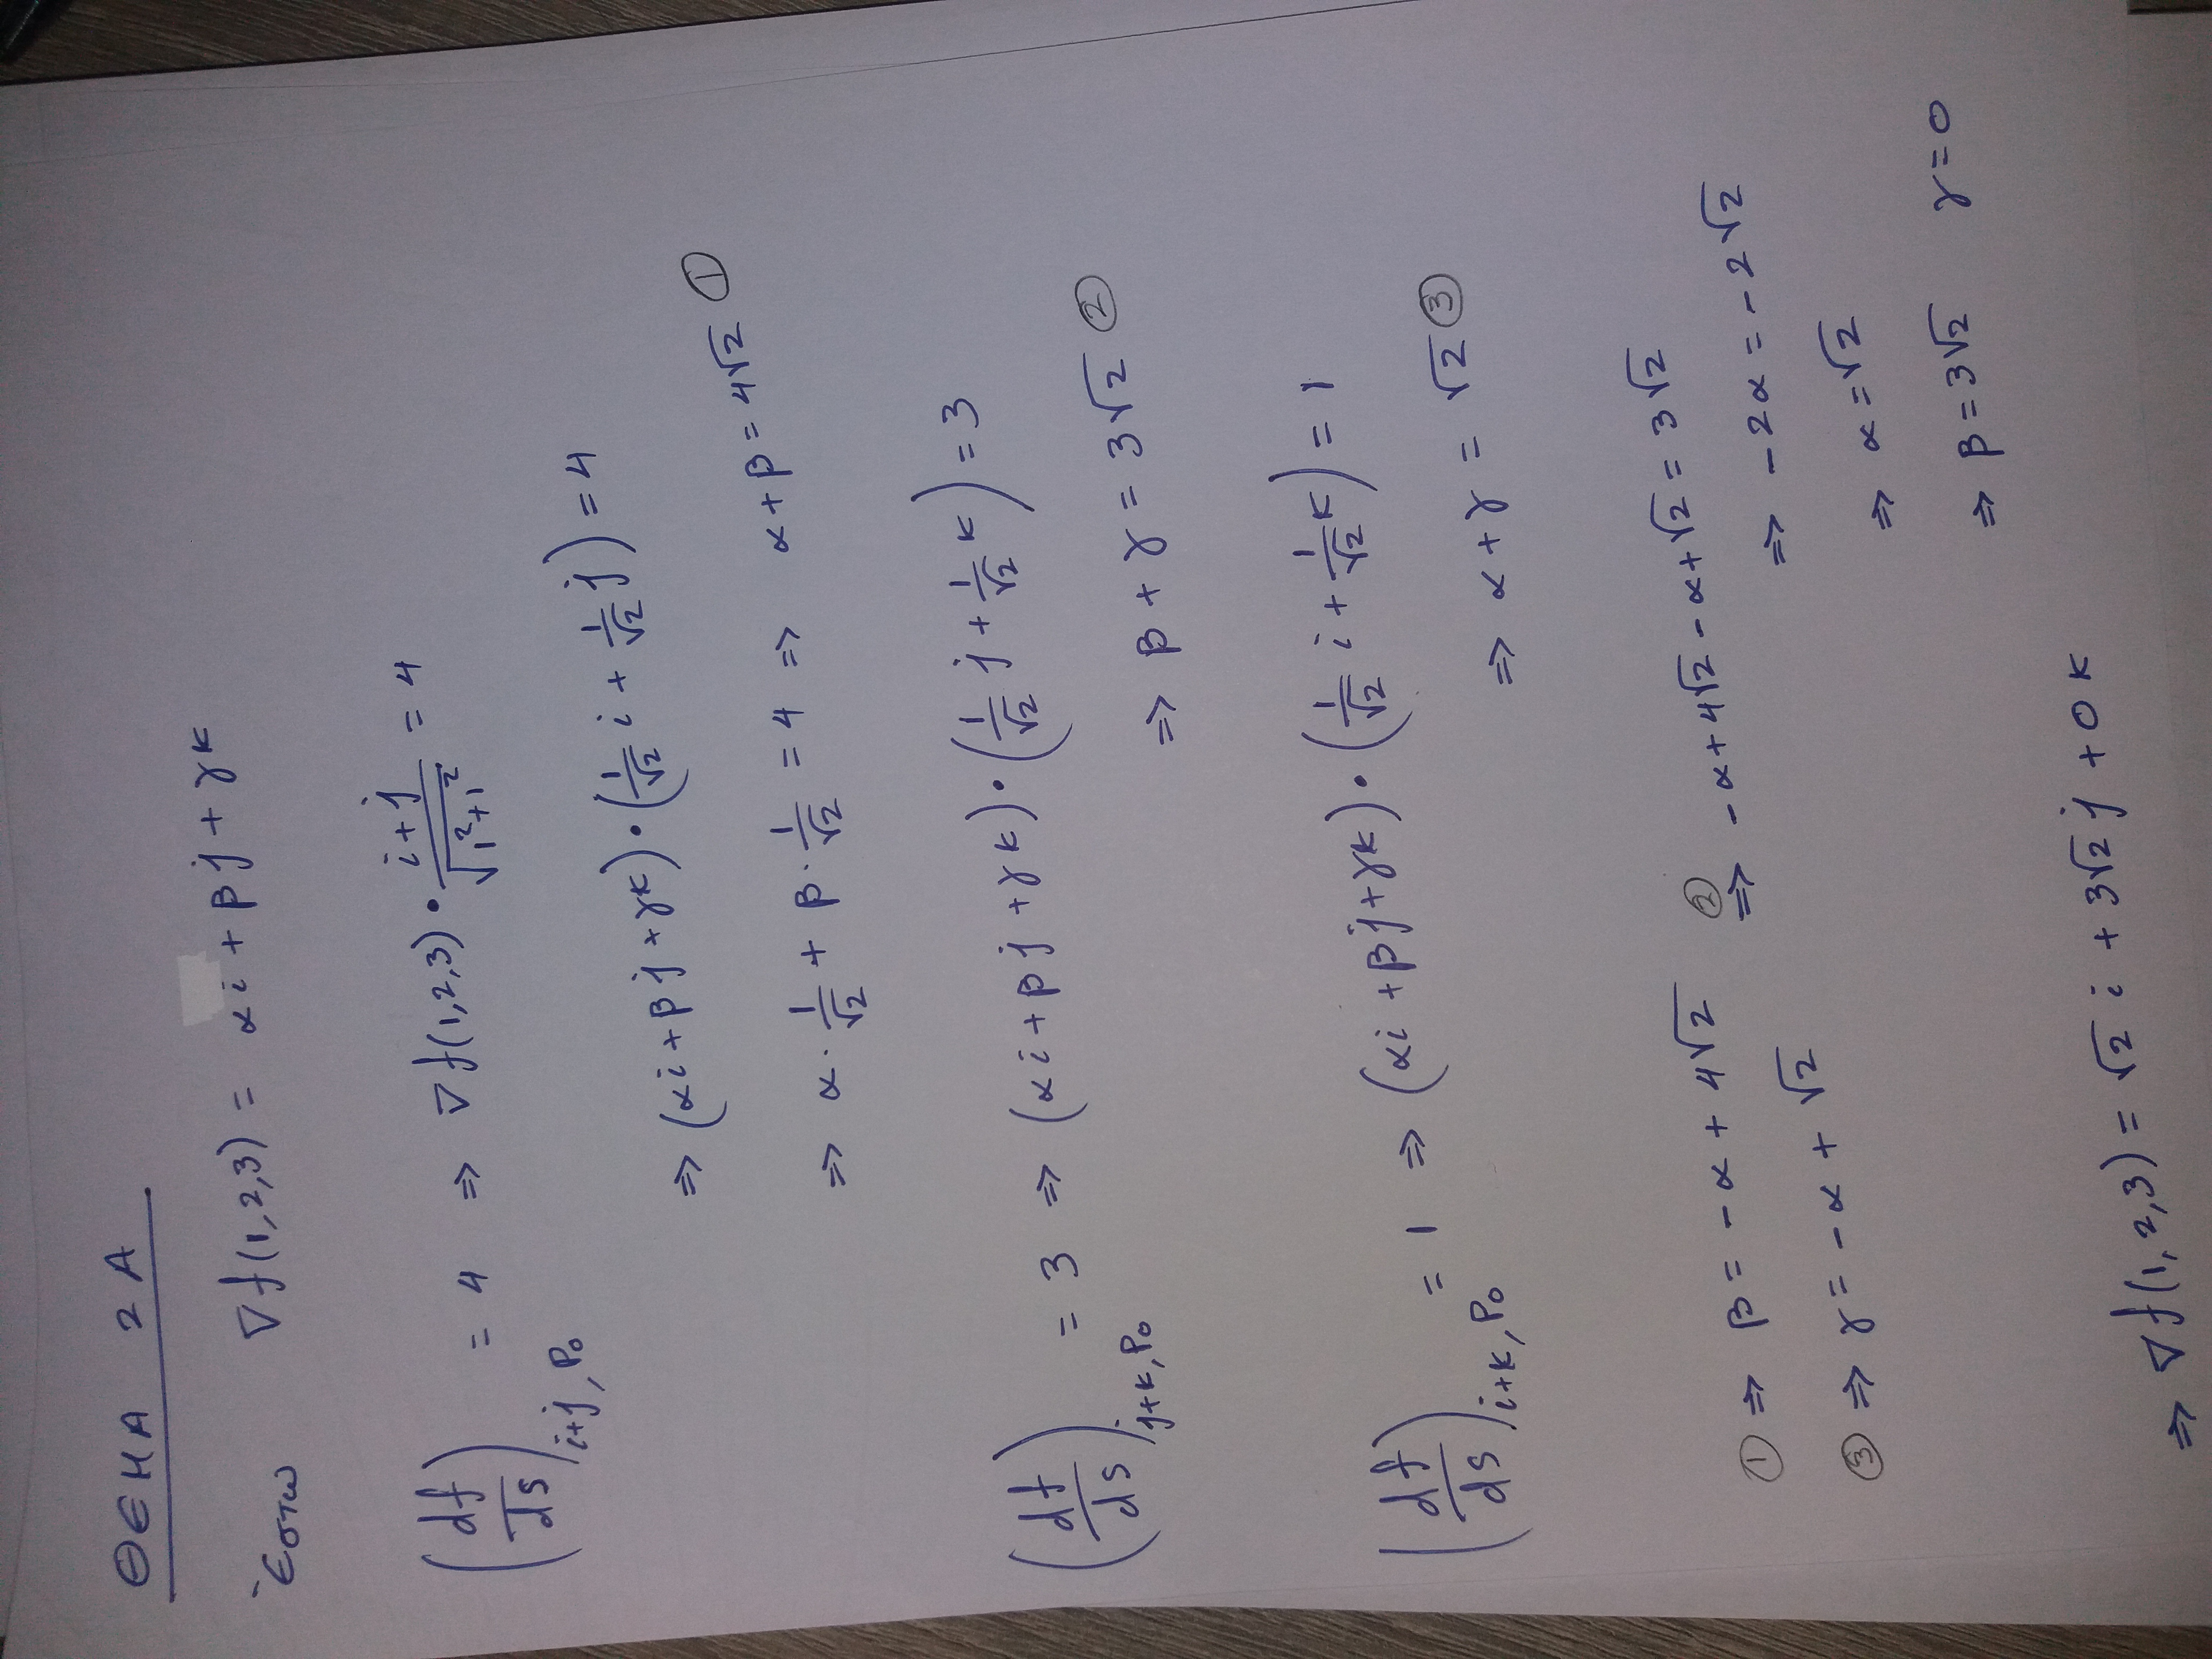 ΘΕΜΑ 2Α
έστω ∇f(1,2,3) = αi + βj + γk
(df/ds)_{i+j, P₀} = 4 ⇒ ∇f(1,2,3) • (i+j)/√(1²+1²) = 4
⇒ (αi + βj + γk) • (1/√2 i + 1/√2 j) = 4
⇒ α · 1/√2 + β · 1/√2 = 4 ⇒ α + β = 4√2 ①
(df/ds)_{j+k, P₀} = 3 ⇒ (αi + βj + γk) • (1/√2 j + 1/√2 k) = 3
⇒ β + γ = 3√2 ②
(df/ds)_{i+k, P₀} = 1 ⇒ (αi + βj + γk) • (1/√2 i + 1/√2 k) = 1
⇒ α + γ = √2 ③
① ⇒ β = -α + 4√2 ②⇒ -α + 4√2 - α + √2 = 3√2
③ ⇒ γ = -α + √2 ⇒ -2α = -2√2
⇒ α = √2
⇒ β = 3√2 γ = 0
⇒ ∇f(1,2,3) = √2 i + 3√2 j + 0k